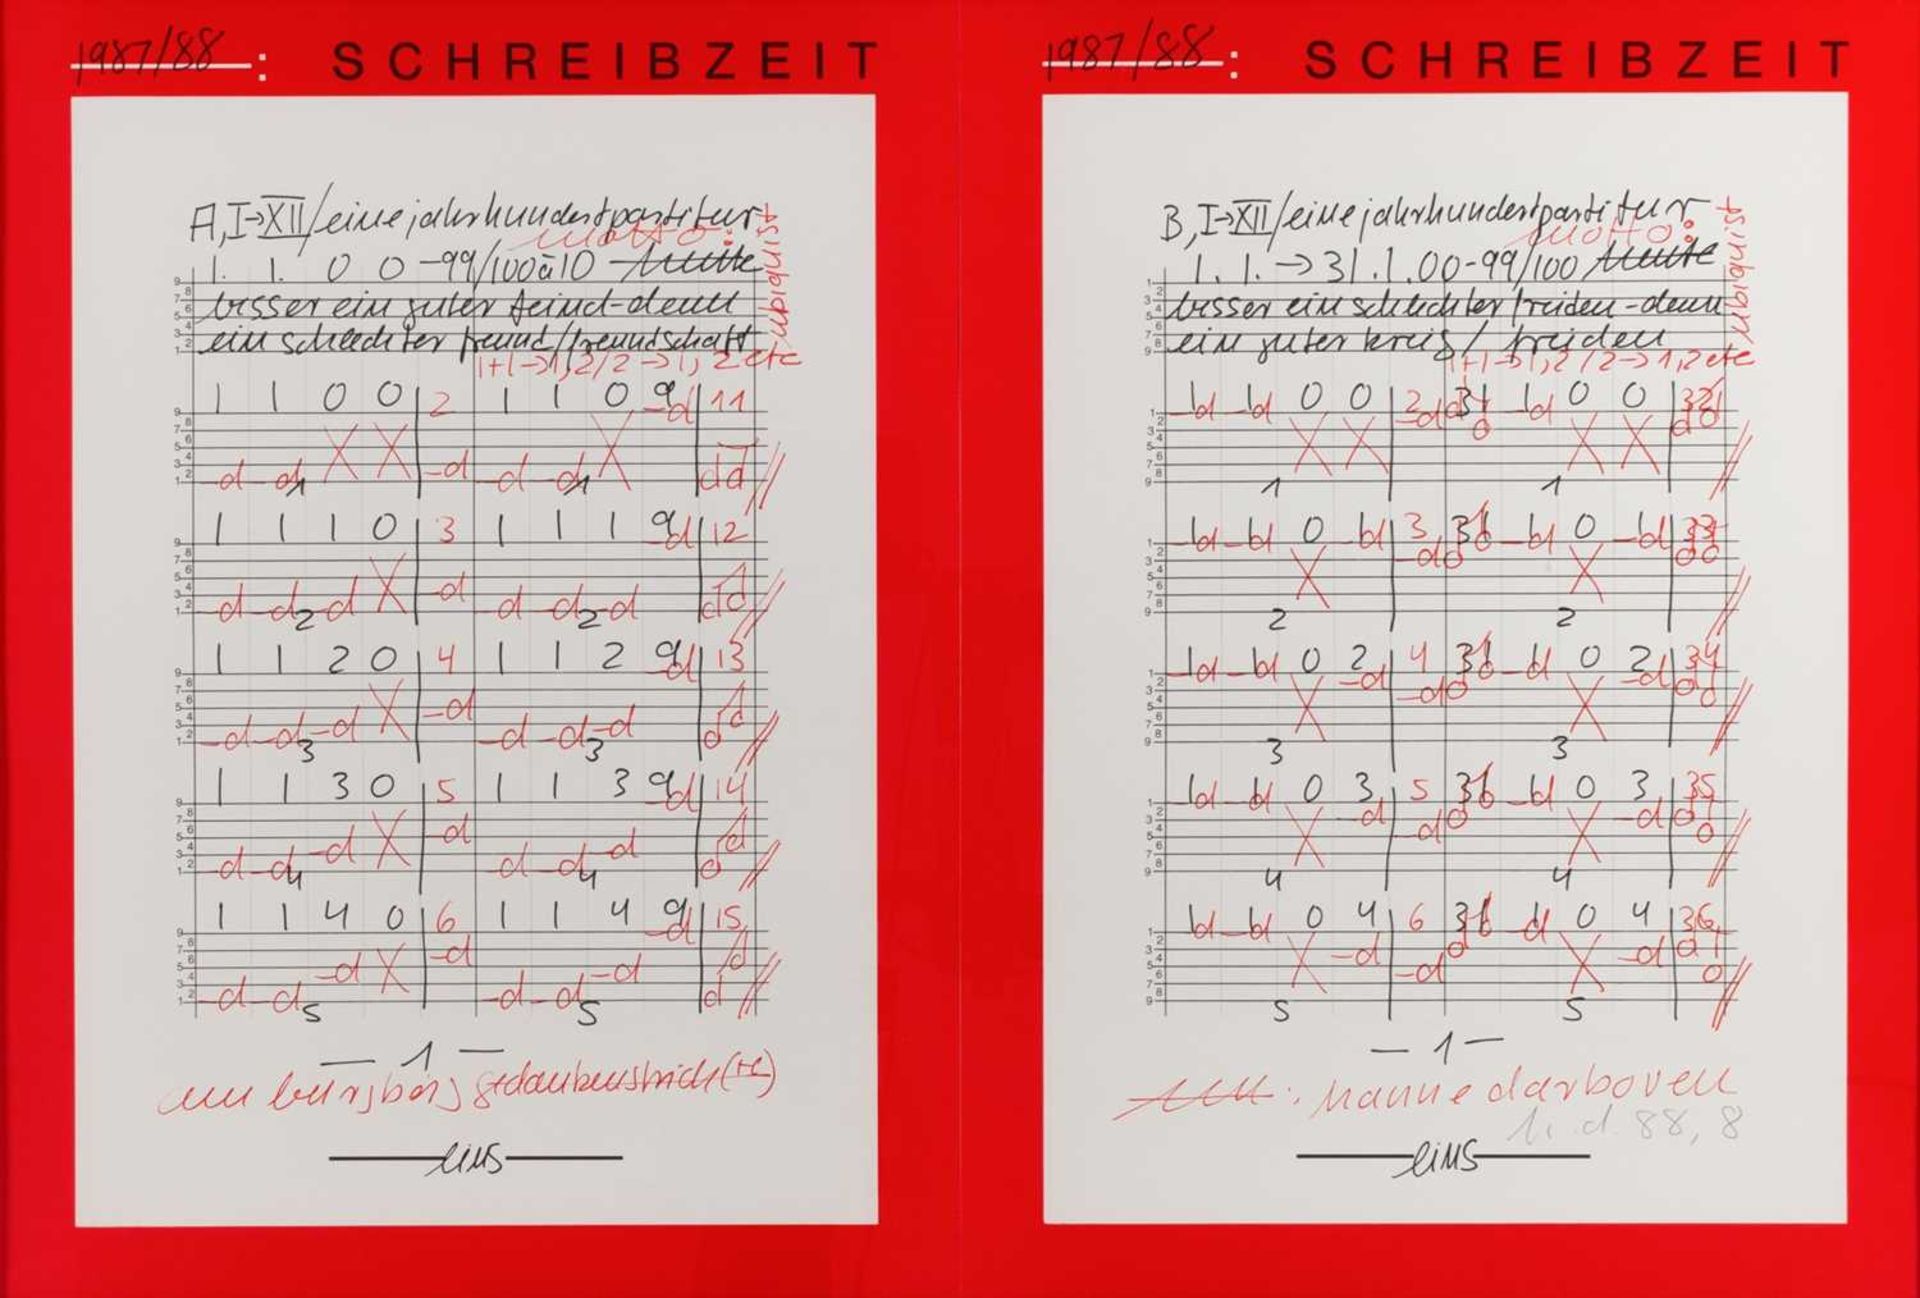 1987/88 : SCHREIBZEIT
A, I→XII/eine jahrhundertpartitur
motto:
1. 1. 0 0 -99/100 à 10 - heute
besser ein guter feind - denn
ein schlechter freund/freundschaft
/ubiquist
1+1→1,2/2→1,2 etc
1 1 0 0 2 1 1 0 9 11
1 1
1 1 1 0 3 1 1 1 9 12
2 2
1 1 2 0 4 1 1 2 9 13
3 3
1 1 3 0 5 1 1 3 9 14
4 4
1 1 4 0 6 1 1 4 9 15
5 5
— 1 —
am burgberg gedankenstrich
eins
1987/88 : SCHREIBZEIT
B, I→XII/eine jahrhundertpartitur
motto:
1. 1. → 31. 1. 00-99/100 heute
besser ein schlechter frieden - denn
ein guter krieg / frieden
/ubiquist
1+1→1,2/2→1,2 etc
1 1 0 0 2 31 1 0 0 32
1 1
1 1 0 1 3 31 1 0 1 33
2 2
1 1 0 2 4 31 1 0 2 34
3 3
1 1 0 3 5 31 1 0 3 35
4 4
1 1 0 4 6 31 1 0 4 36
5 5
— 1 —
: hanne darboven
88, 8
eins